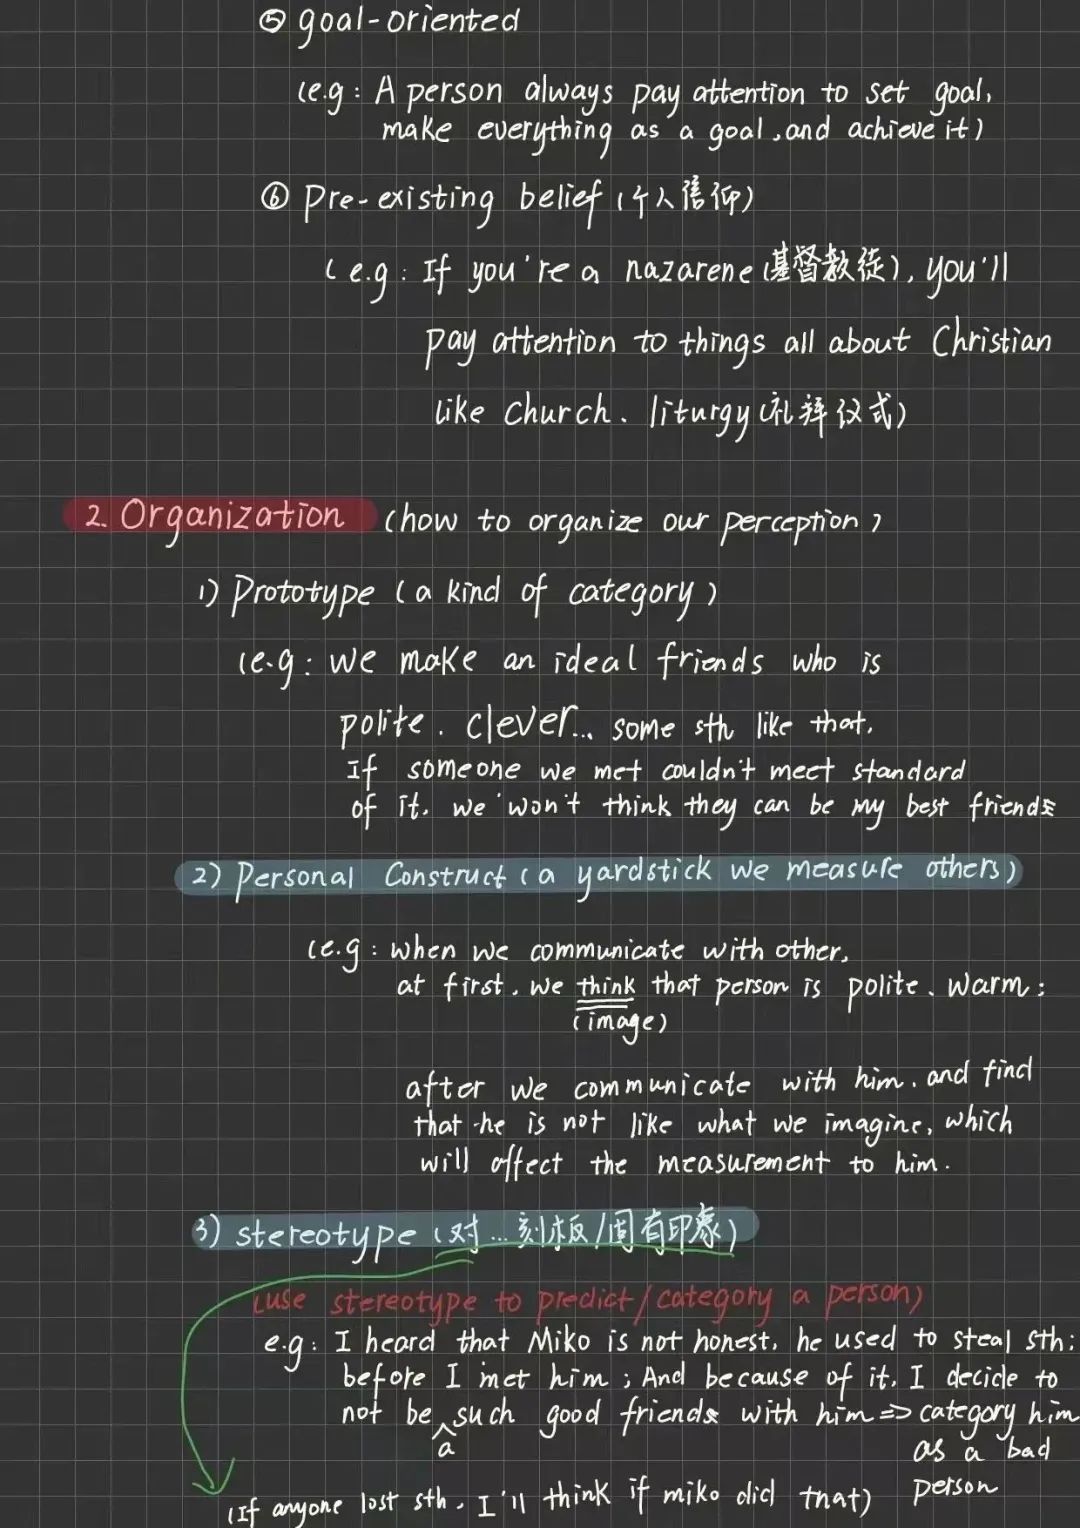 ⑤ goal-oriented
(e.g: A person always pay attention to set goal,
make everything as a goal, and achieve it)
⑥ Pre-existing belief (个人信仰)
(e.g: If you're a nazarene (基督教徒), you'll
pay attention to things all about Christian
like Church、liturgy (礼拜仪式)
2. Organization (how to organize our perception)
1) Prototype (a kind of category)
(e.g: we make an ideal friends who is
polite、clever... some sth like that.
If someone we met couldn't meet standard
of it, we won't think they can be my best friends
2) Personal Construct (a yardstick we measure others)
(e.g: when we communicate with other,
at first, we think that person is polite、warm;
(image)
after we communicate with him, and find
that he is not like what we imagine, which
will affect the measurement to him.
3) stereotype (对...刻板/固有印象)
(use stereotype to predict/category a person)
e.g: I heard that Miko is not honest, he used to steal sth;
before I met him; And because of it, I decide to
not be such good friends with him => category him
a
as a bad
person
(If anyone lost sth, I'll think if miko did that)